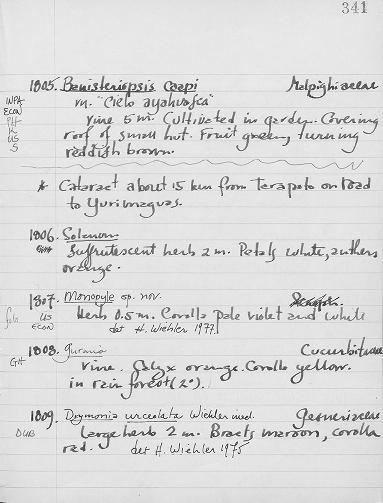 341
1805. Banisteriopsis Caapi Malpighiaceae
vn. "Cielo ayahuasca"
WPA
ECON
PH
K
US
S
vine 5 m. Cultivated in garden. Covering
roof of small hut. Fruit green, turning
reddish brown.
* Cataract about 15 km from Tarapoto on road
to Yurimaguas.
1806. Solanum
Suffrutescent herb 2 m. Petals white, anthers
orange.
1807. Monopyle sp. nov.
US
ECON
Herb 0.5 m. Corolla pale violet and white
det H. Wiehler 1977
1808. Gurania Cucurbitaceae
GH
Vine. Calyx orange. Corolla yellow.
in rain forest (2°).
1809. Drymonia urceolata Wiehler ined. Gesneriaceae
DUB
Large herb 2 m. Bracts maroon, corolla
red. det H. Wiehler 1975